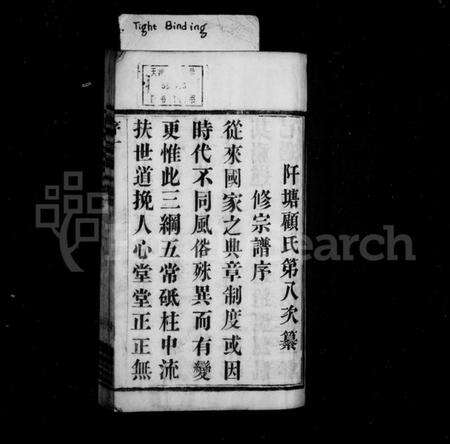 Tight Binding
阡塘顧氏第八次纂
修宗譜序
從來國家之典章制度或因
時代不同風俗殊異而有變
更惟此三綱五常砥柱中流
扶世道挽人心堂堂正正無
序